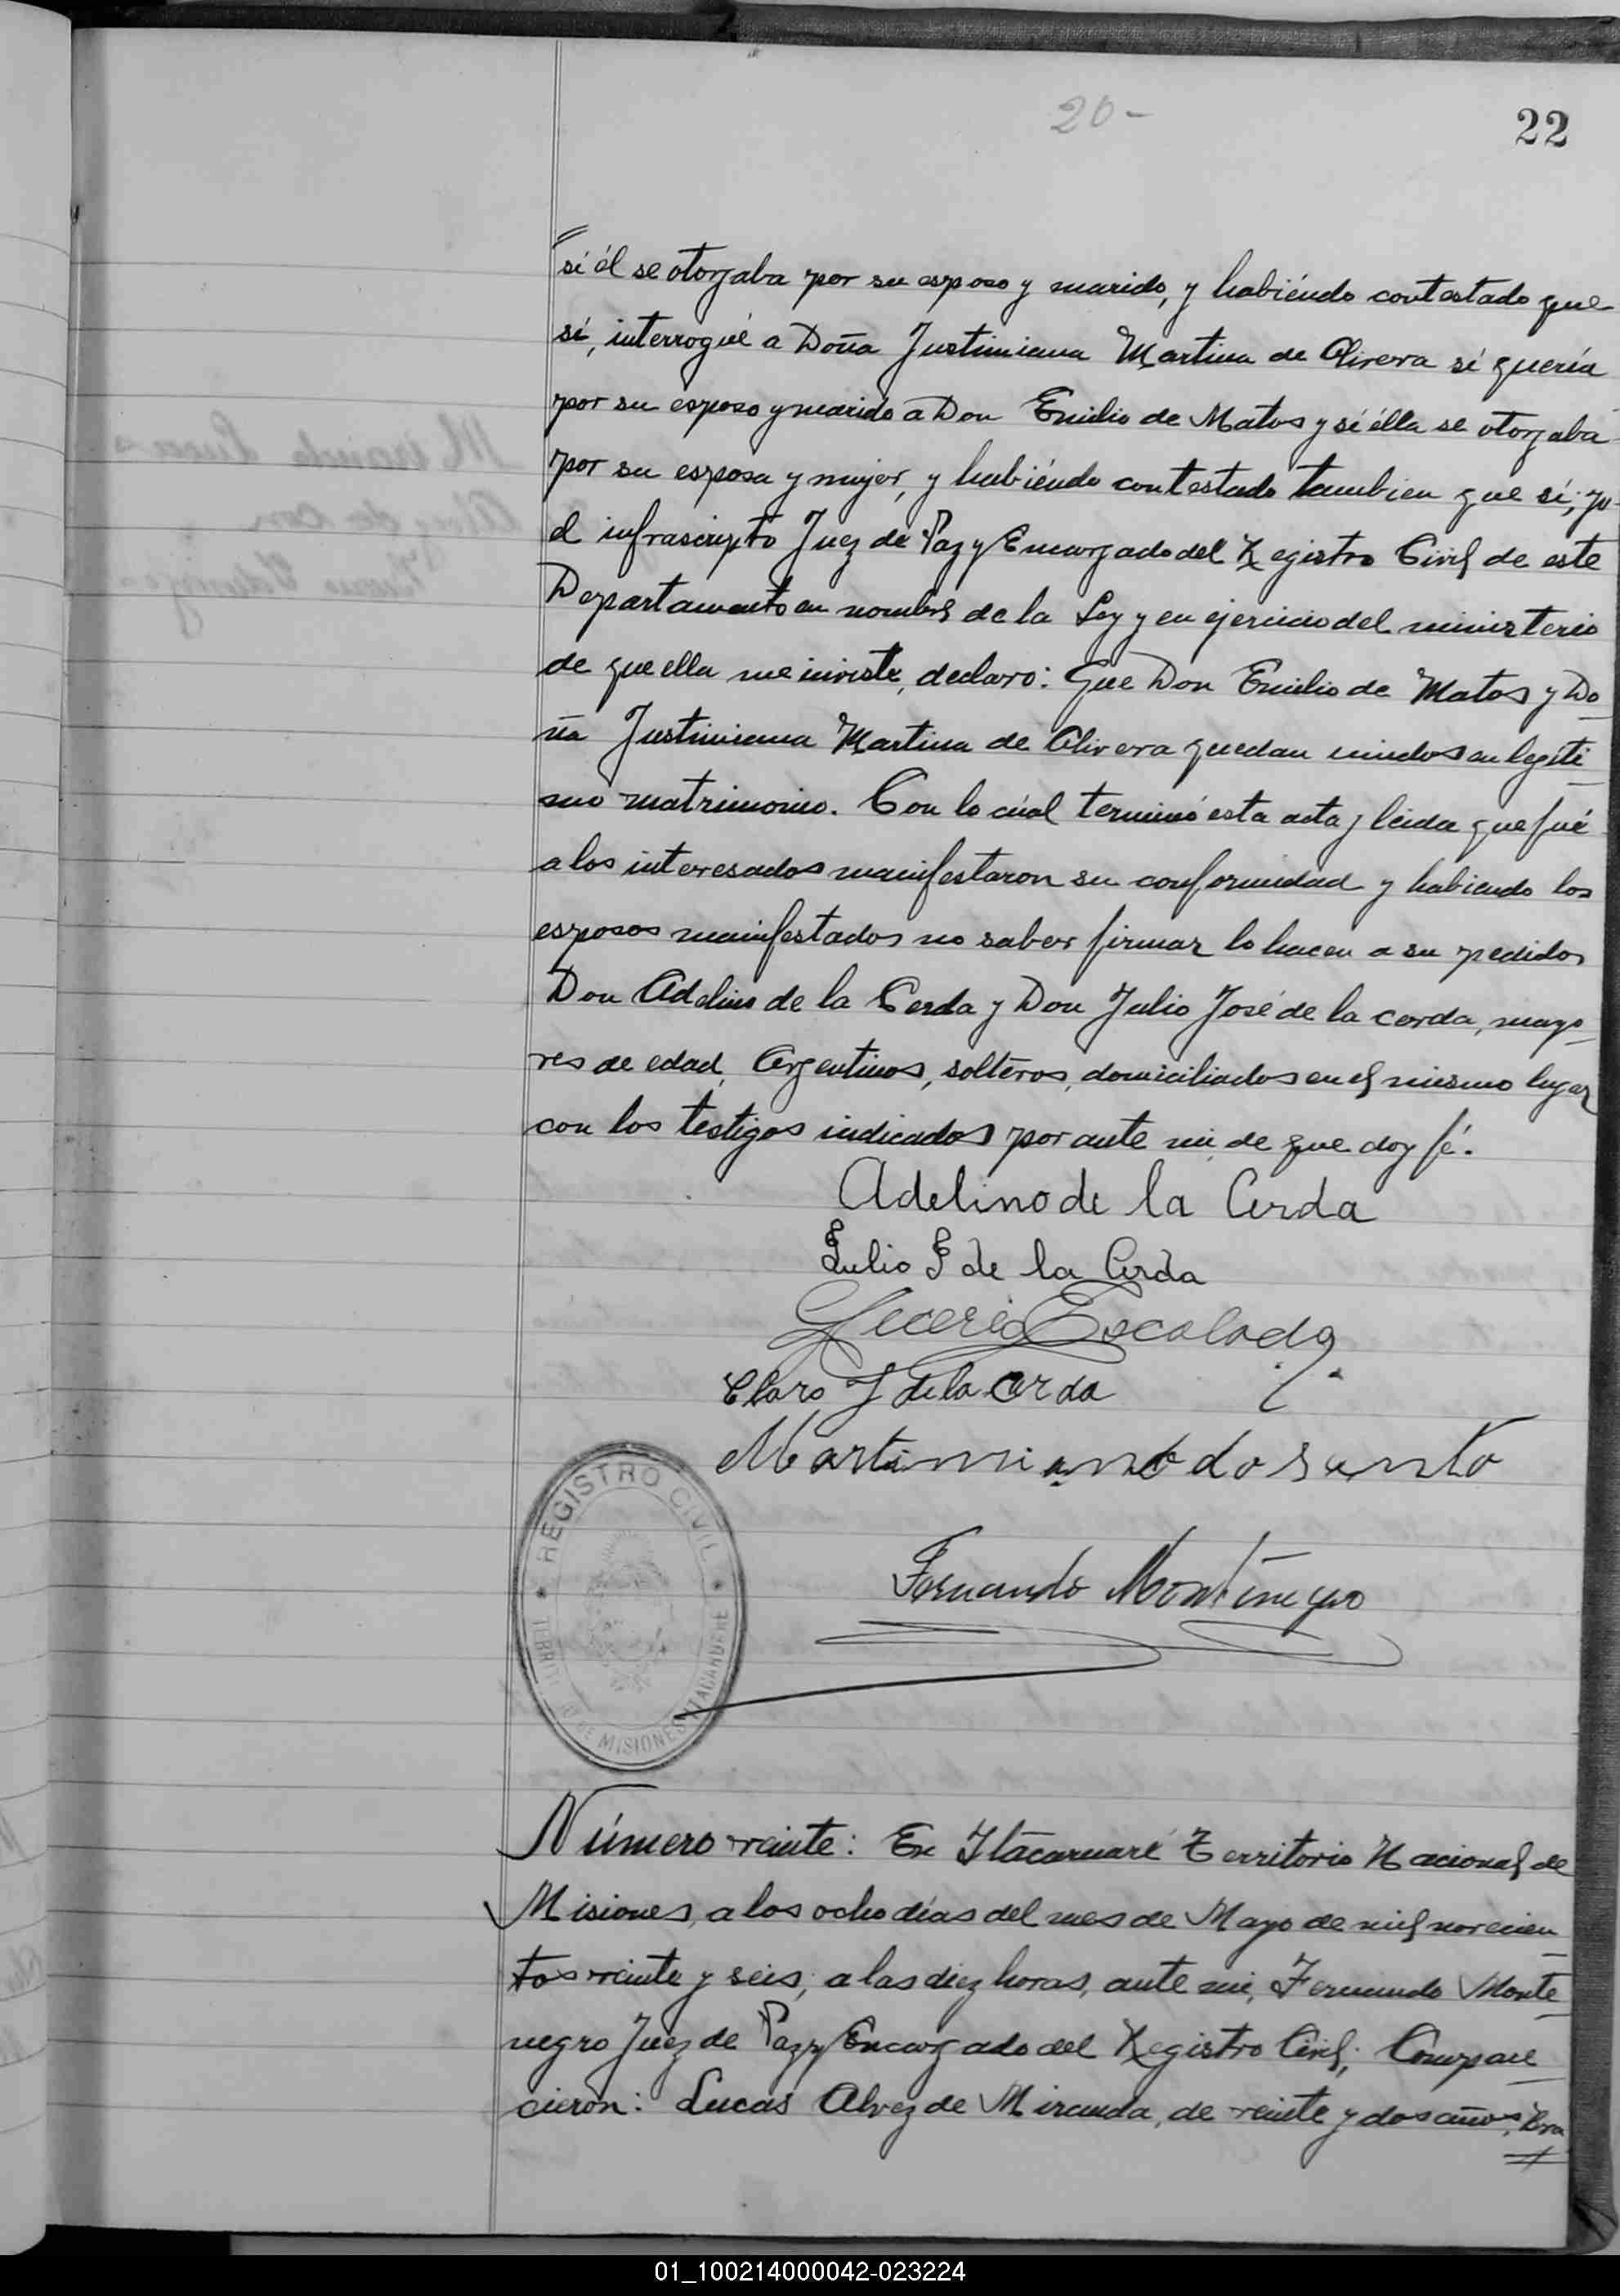 20-
22
sí él se otorgaba por su esposo y marido, y habiéndo contestado que
sí, interrogué a Doña Justiniana Martina de Olivera sí quería
por su esposo y marido a Don Emilio de Matos y sí élla se otorgaba
por su esposa y mujer, y habiéndo contestado tambien que sí; yo
el infrascripto Juez de Paz y Encargado del Registro Civil de este
Departamento en nombre de la Ley y en ejercicio del ministerio
de que ella me inviste, declaro: Que Don Emilio de Matos y Do
ña Justiniana Martina de Olivera quedan unidos en legíti
mo matrimonio. Con lo cúal terminó esta acta y leida que fué
a los interesados manifestaron su conformidad y habiendo los
esposos manifestados no saber firmar lo hacen a su pedidos
Don Adelino de la Cerda y Don Julio José de la cerda, mayo
res de edad, Argentinos, solteros, domiciliados en el mismo lugar
con los testigos indicados por ante mi de que doy fé.
Adelino de la Cerda
Julio J de la Cerda
Escalada
Claro J de la Cerda
Martimiano do santo
Fernando Montenegro
REGISTRO CIVIL
DE MISIONES ITACARUARE
Número veinte: En Itácaruaré Territorio Nacional de
Misiones, a los ocho días del mes de Mayo de mil novecien
tos veinte y seis, a las diez horas, ante mi, Fernando Monte
negro Juez de Paz y Encargado del Registro Civil; Compare
cieron: Lucas Alvez de Miranda, de veinte y dos años, Bra
01_100214000042-023224